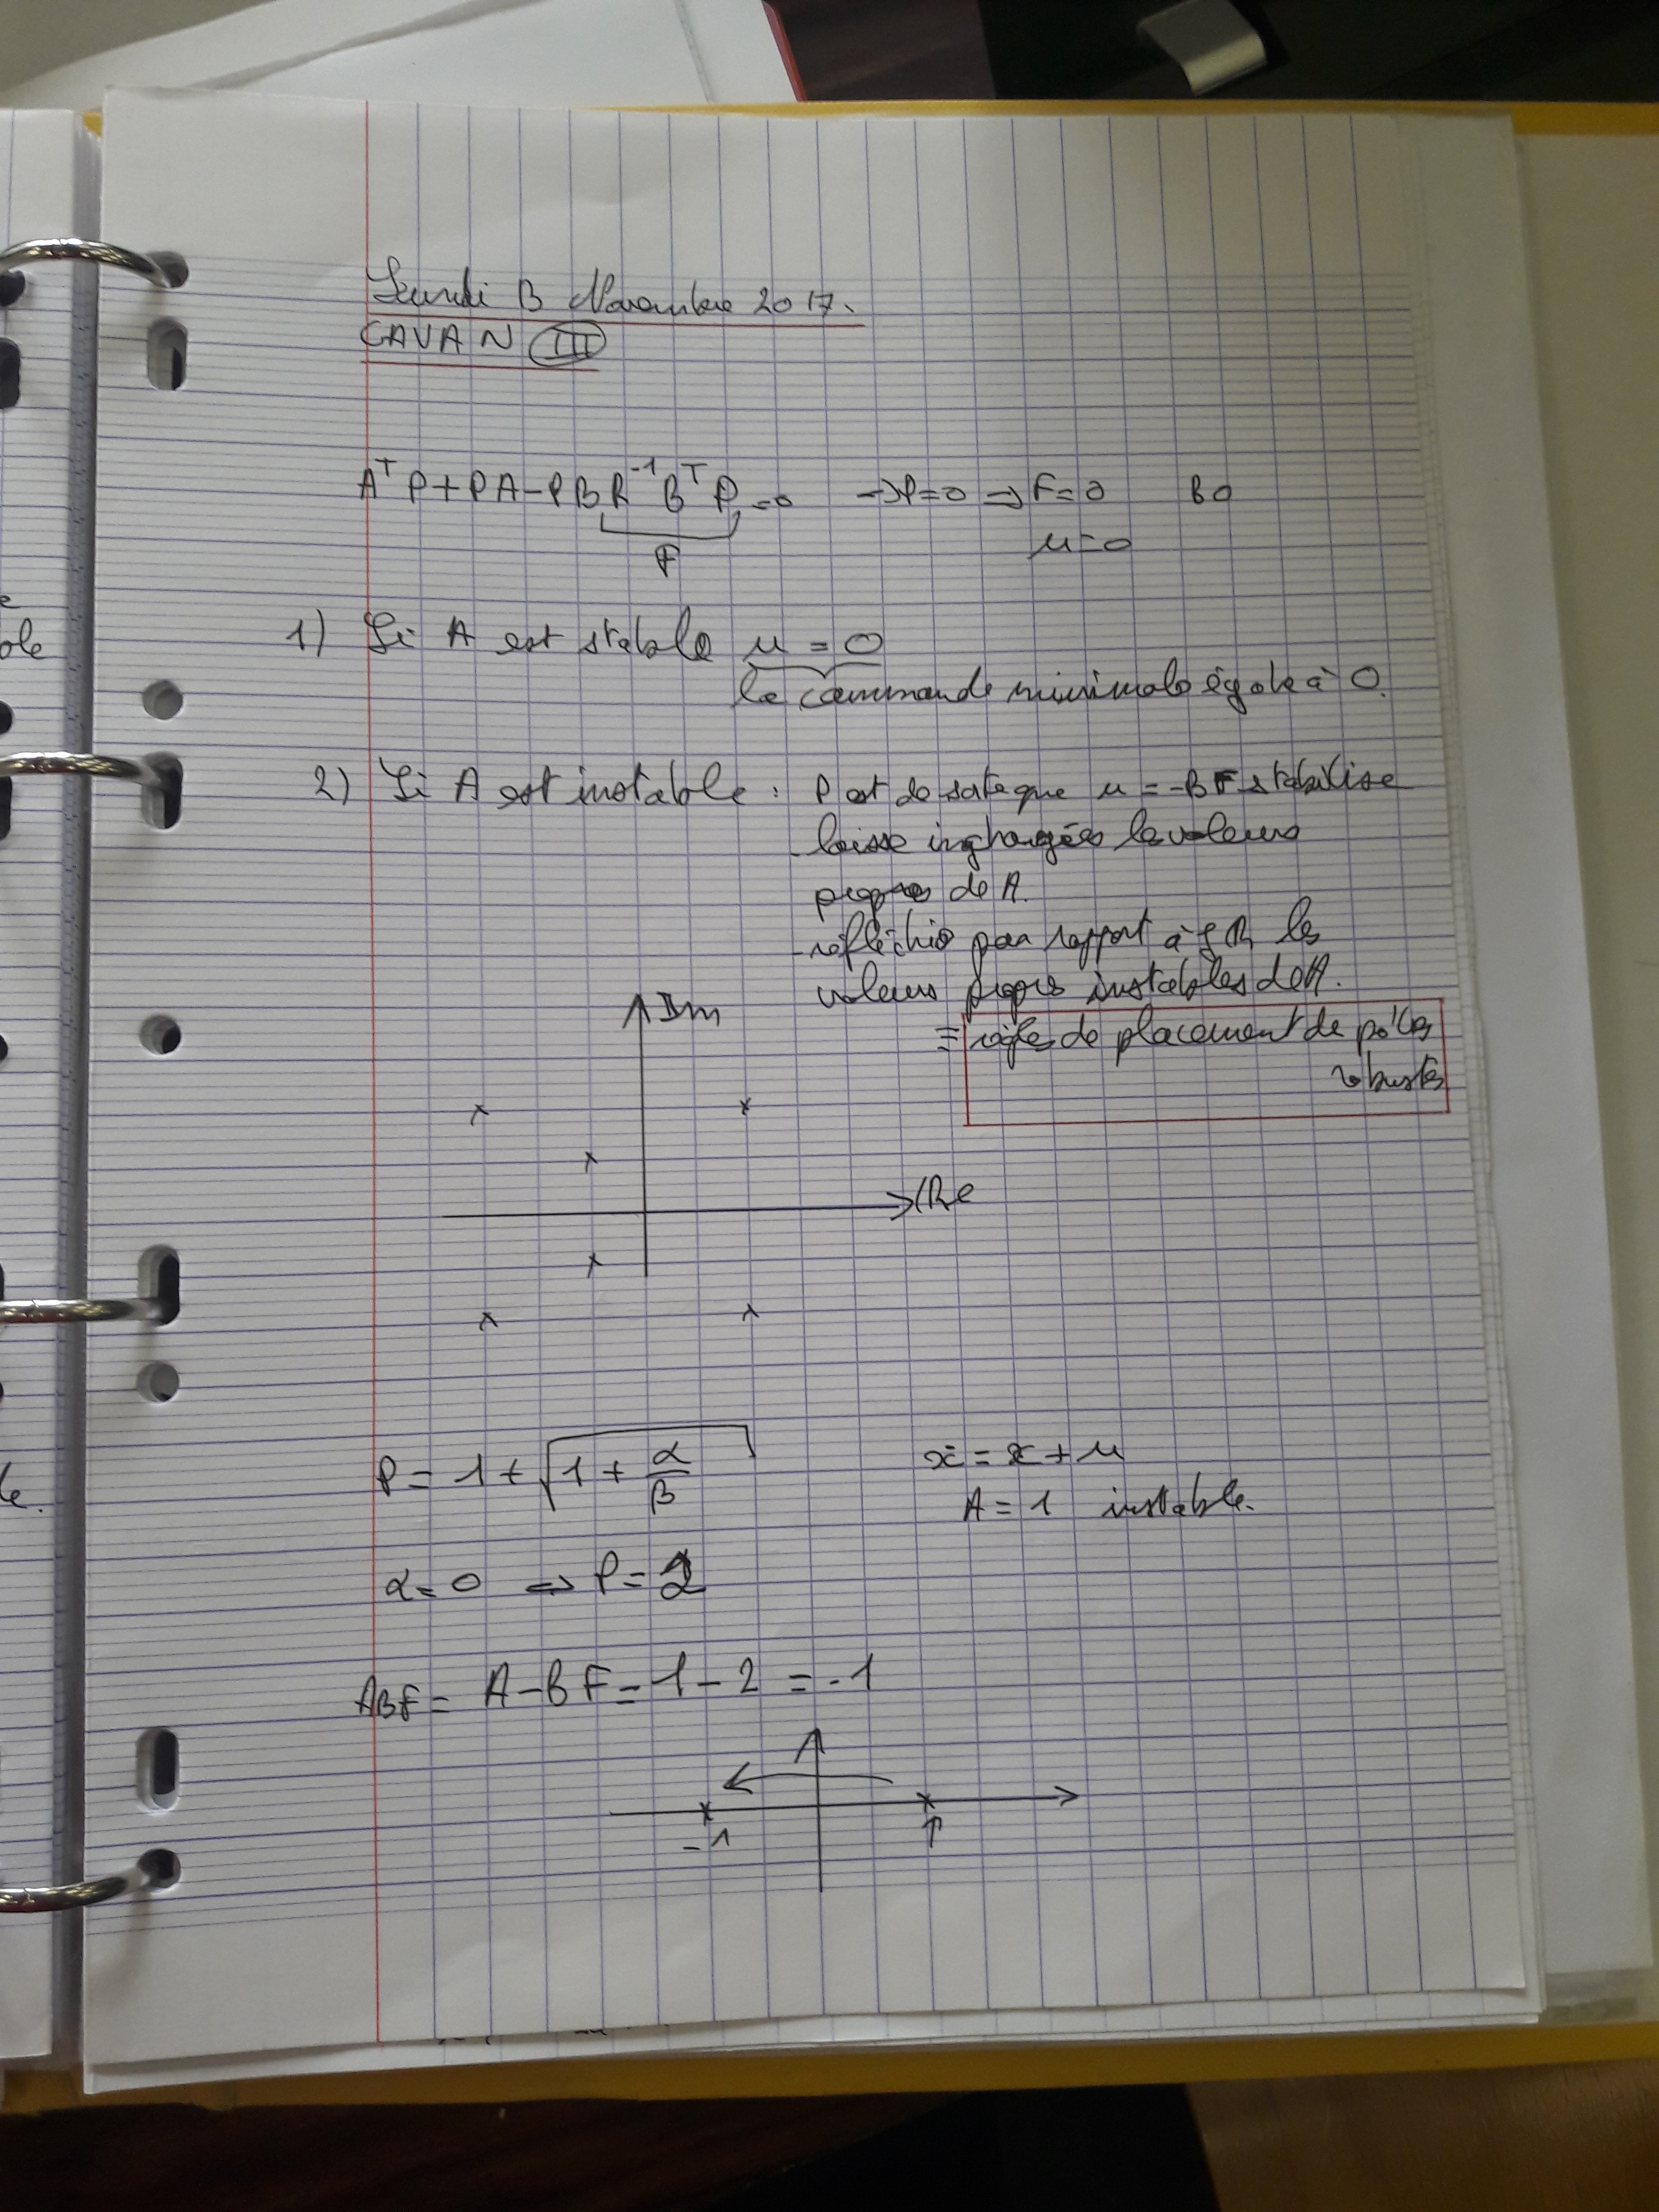 Lundi 13 Novembre 2017.
CAVAN III
A^T P + PA - PBR^-1 B^T P = 0 → P = 0 ⇒ F = 0 BO
F
u = 0
1) Si A est stable u = 0
la commande minimale égale à 0.
2) Si A est instable : P est de sorte que u = -BF stabilise
- laisse inchangées les valeurs
propres de A.
- réfléchie par rapport à jR les
valeurs propres instables de A.
≡ règles de placement de pôles
robustes
Im
Re
P = 1 + √(1 + α/β) ẋ = x + u
A = 1 instable.
α = 0 ⇒ P = 2
A_BF = A - BF = 1 - 2 = -1
-1 1